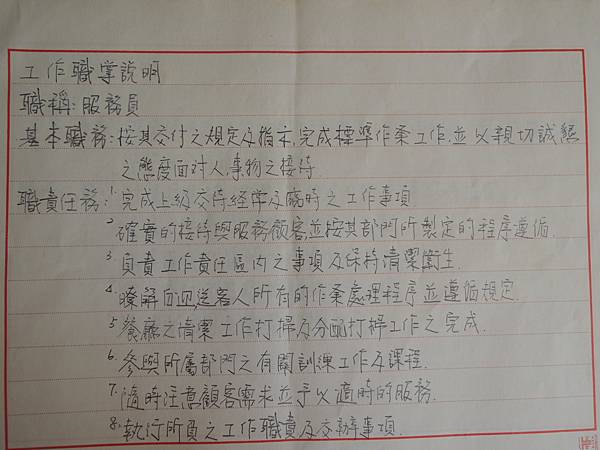 工作職掌說明
職稱:服務員
基本職務:按其交付之規定及指示,完成標準作業工作,並以親切誠懇
之態度面对人、事物之接待
職責任務:1.完成上級交待經常及臨時之工作事項.
2.確實的接待與服務顧客並按其部門所製定的程序遵循.
3.負責工作責任區內之事項及保持清潔衛生.
4.瞭解自迎送客人所有的作業處理程序並遵循規定.
5.餐廳之清潔工作打掃及分配打掃工作之完成.
6.參與所屬部門之有關訓練工作及課程.
7.隨時注意顧客需求並予以適時的服務.
8.執行所負之工作職責及交辦事項.